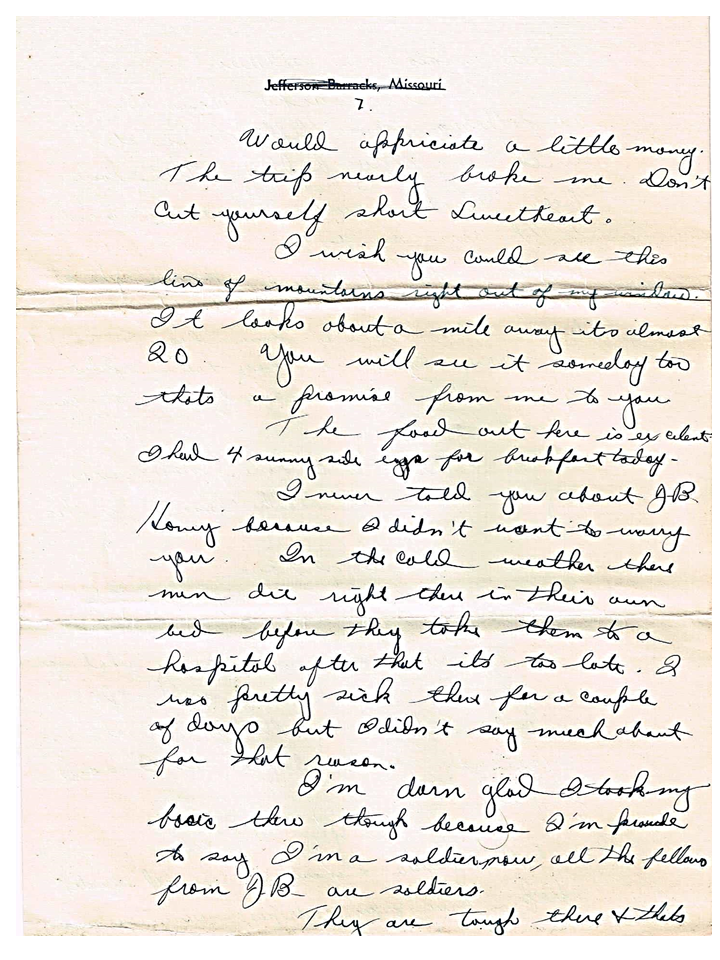 Jefferson Barracks, Missouri
7.
Would appriciate a little money.
The trip nearly broke me. Don't
cut yourself short Sweetheart.
I wish you could see this
line of mountains right out of my window.
It looks about a mile away its almost
20. You will see it someday too
thats a promise from me to you
The food out here is excelent
I had 4 sunny side eggs for breakfast today-
I never told you about J.B.
Honey because I didn't want to worry
you. In the cold weather there
men die right there in their own
bed before they take them to a
hospital after that its too late. I
was pretty sick there for a couple
of days but I didn't say much about
for that reason.
I'm darn glad I took my
basic there though because I'm proude
to say I'm a soldier now, all the fellows
from J.B. are soldiers.
They are tough there & thats